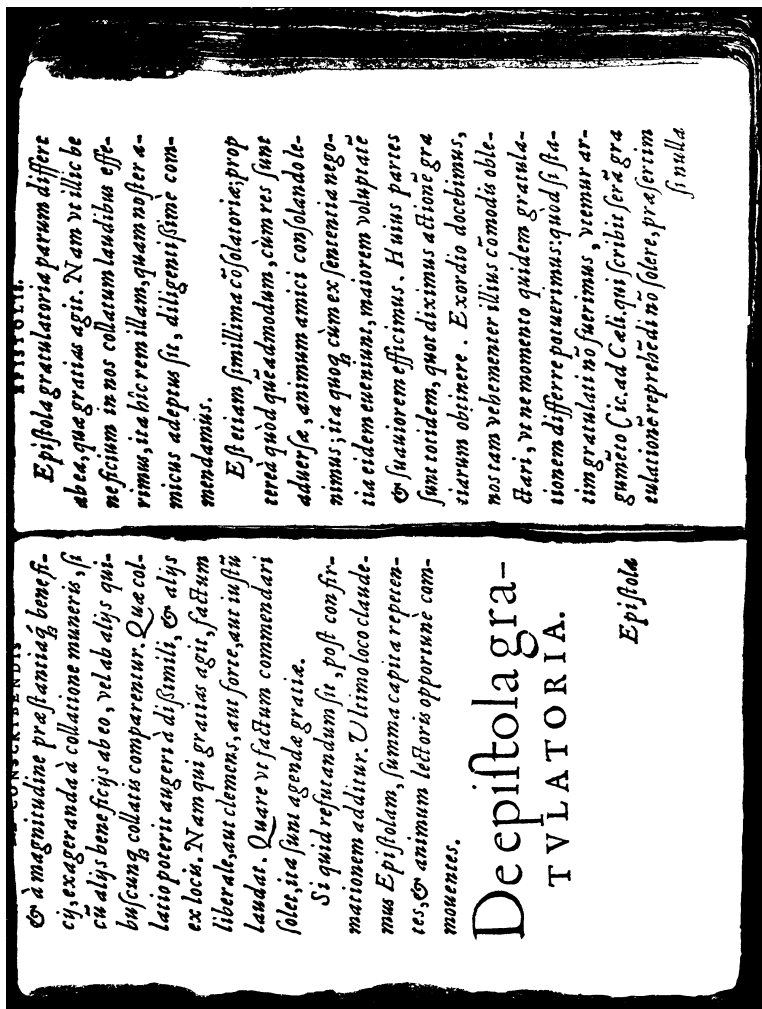 DE CONSCRIBENDIS
& à magnitudine præstantiáq; benefi-
cij, exageranda à collatione muneris, si
cū alijs beneficijs ab eo, vel ab alijs qui-
buscunq; collatis comparentur. Quæ col-
latio poterit augeri à dißimili, & alijs
ex locis. Nam qui gratias agit, factum
liberale, aut clemens, aut forte, aut iustū
laudat. Quare vt factum commendari
solet, ita sunt agendæ gratiæ.
Si quid refutandum sit, post confir-
mationem additur. Vltimo loco claude-
mus Epistolam, summa capita repeten-
tes, & animum lectoris opportunè com-
mouentes.
De epistola gra-
TVLATORIA.
Epistola
EPISTOLIS.
Epistola gratulatoria parum differt
ab ea, qua gratias agit. Nam vt illic be
neficium in nos collatum laudibus effe-
rimus, ita hîc rem illam, quam noster a-
micus adeptus sit, diligentißimè com-
mendamus.
Est etiam simillima cōsolatoriæ; prop
tereà quòd quēadmodum, cùm res sunt
aduersæ, animum amici consolando le-
nimus; ita quoq; cùm ex sententia nego-
tia eidem eueniunt, maiorem voluptatē
& suauiorem efficimus. Huius partes
sunt totidem, quot diximus actionē gra
tiarum obtinere. Exordio docebimus,
nos tam vehementer illius cōmodis oble-
ctari, vt ne momento quidem gratula-
tionem differre potuerimus: quòd si sta-
tim gratulati nō fuerimus, vtemur ar-
gumēto Cic. ad Cæli. qui scribit serā gra
tulationē reprehēdi nō solere, præsertim
si nulla